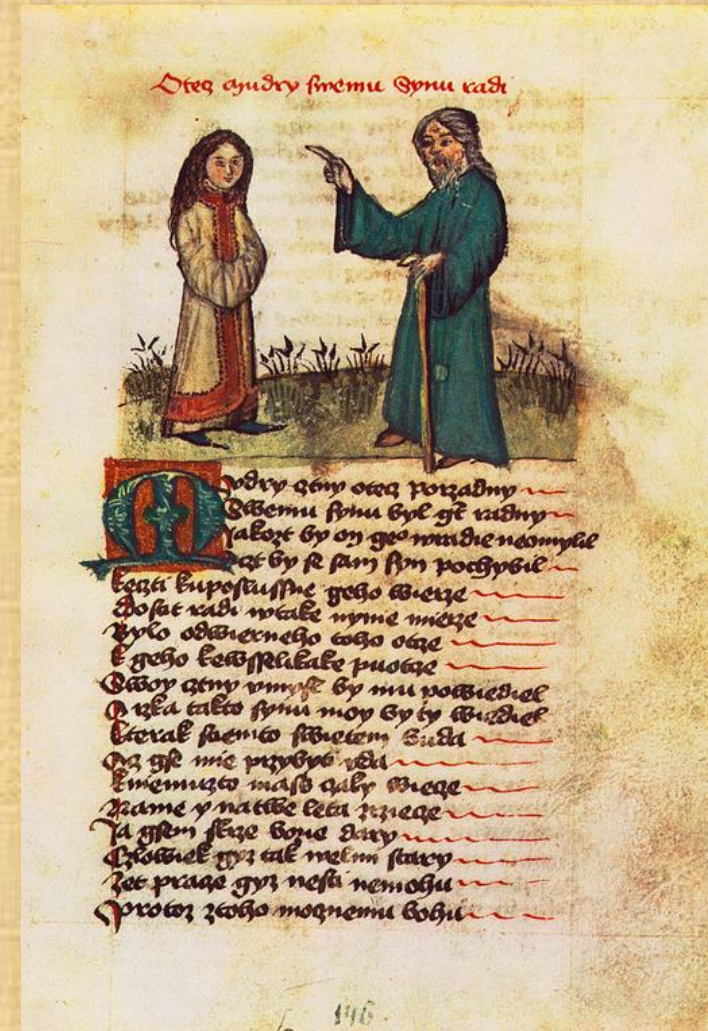 Otecz mudry swemu Synu radi
Mudry cztny otecz porzadny
Swemu synu byl gt radny
Jakozt by on geo wradie neomylil
by se sam syn pochybil
keczti kuposlussne geho wierze
dosat radi wtake nynie mierze
Bylo odwierneho toho otcze
k geho kewsselikake puotcze
Swoy cztny vmysl by mu powiediel
A rzka takto synu moy by ty wiediel
kterak swiemto swietem
gse mie przybyt
kniemuzto mass czaly wiecze
Na me y na twe leta
Ja gsem skrze bozie dary
Czlowiek gyz tak welmi stary
Zet pracze gyz nesti nemohu
Protoz ztoho mocznemu bohu
146